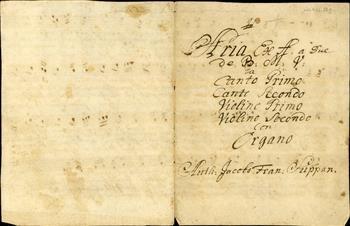 Aria Ex ff a Due
De B. M. V.
a
Canto Primo
Canto Secondo
Violino Primo
Violino Secondo
Con
Organo
Auth. Jacobo Fran.